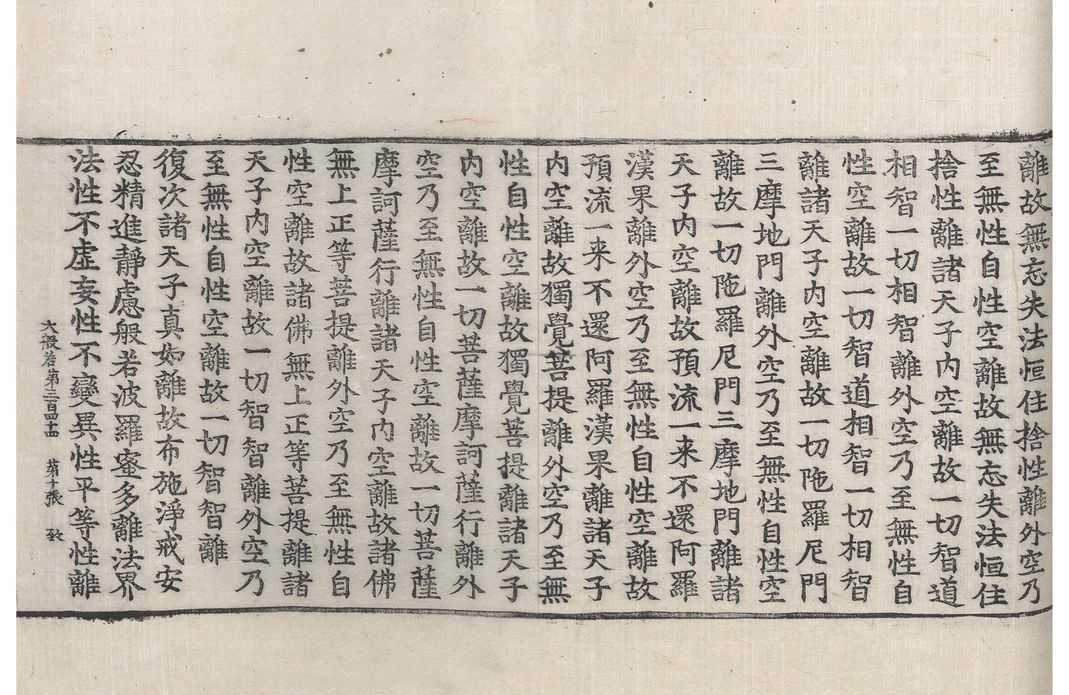 離故無忘失法恒住捨性離外空乃
至無性自性空離故無忘失法恒住
捨性離諸天子內空離故一切智道
相智一切相智離外空乃至無性自
性空離故一切智道相智一切相智
離諸天子內空離故一切陁羅尼門
三摩地門離外空乃至無性自性空
離故一切陁羅尼門三摩地門離諸
天子內空離故預流一来不還阿羅
漢果離外空乃至無性自性空離故
預流一来不還阿羅漢果離諸天子
內空離故獨覺菩提離外空乃至無
性自性空離故獨覺菩提離諸天子
內空離故一切菩薩摩訶薩行離外
空乃至無性自性空離故一切菩薩
摩訶薩行離諸天子內空離故諸佛
無上正等菩提離外空乃至無性自
性空離故諸佛無上正等菩提離諸
天子內空離故一切智智離外空乃
至無性自性空離故一切智智離
復次諸天子真如離故布施淨戒安
忍精進靜慮般若波羅蜜多離法界
法性不虛妄性不變異性平等性離
大般若第三百四十 第十張 致